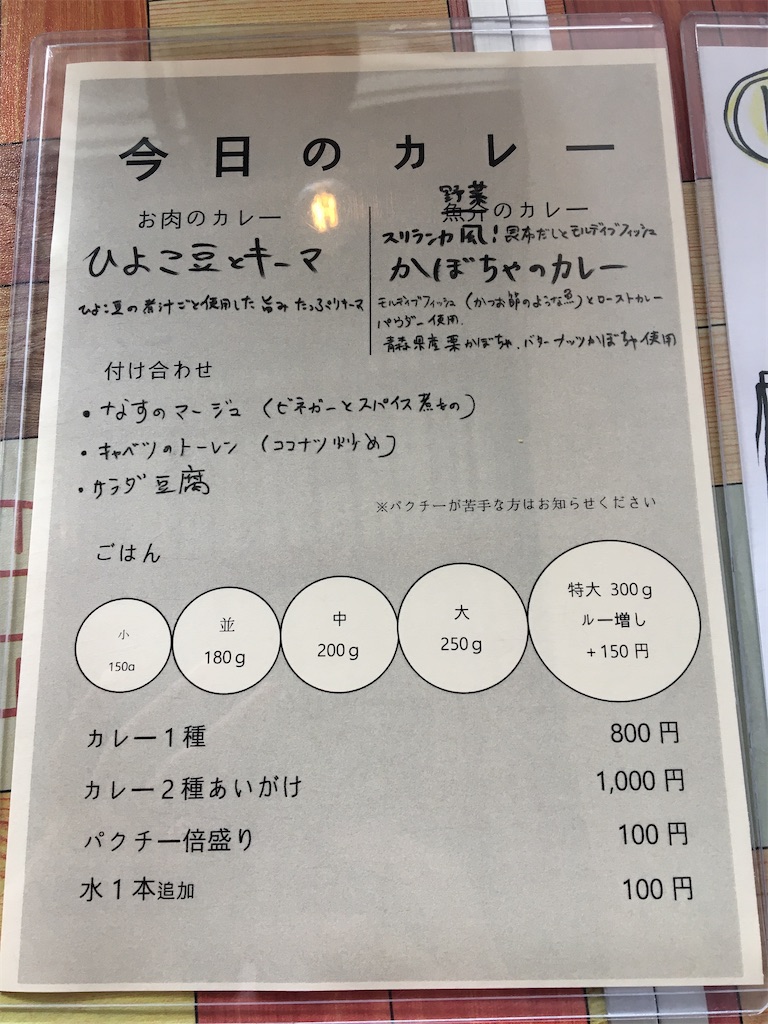 今日のカレー
お肉のカレー
ひよこ豆とキーマ
ひよこ豆の煮汁ごと使用した旨みたっぷりキーマ
野菜
魚介のカレー
スリランカ風!昆布だしとモルディブフィッシュ
かぼちゃのカレー
モルディブフィッシュ(かつお節のような魚)とローストカレー
パウダー使用.
青森県産栗かぼちゃ.バターナッツかぼちゃ使用
付け合わせ
・なすのマージュ(ビネガーとスパイス煮もの)
・キャベツのトーレン(ココナツ炒め)
・サラダ豆腐
※パクチーが苦手な方はお知らせください
ごはん
小
150g
並
180g
中
200g
大
250g
特大 300g
ルー増し
+150円
カレー1種 800円
カレー2種あいがけ 1,000円
パクチー倍盛り 100円
水1本追加 100円